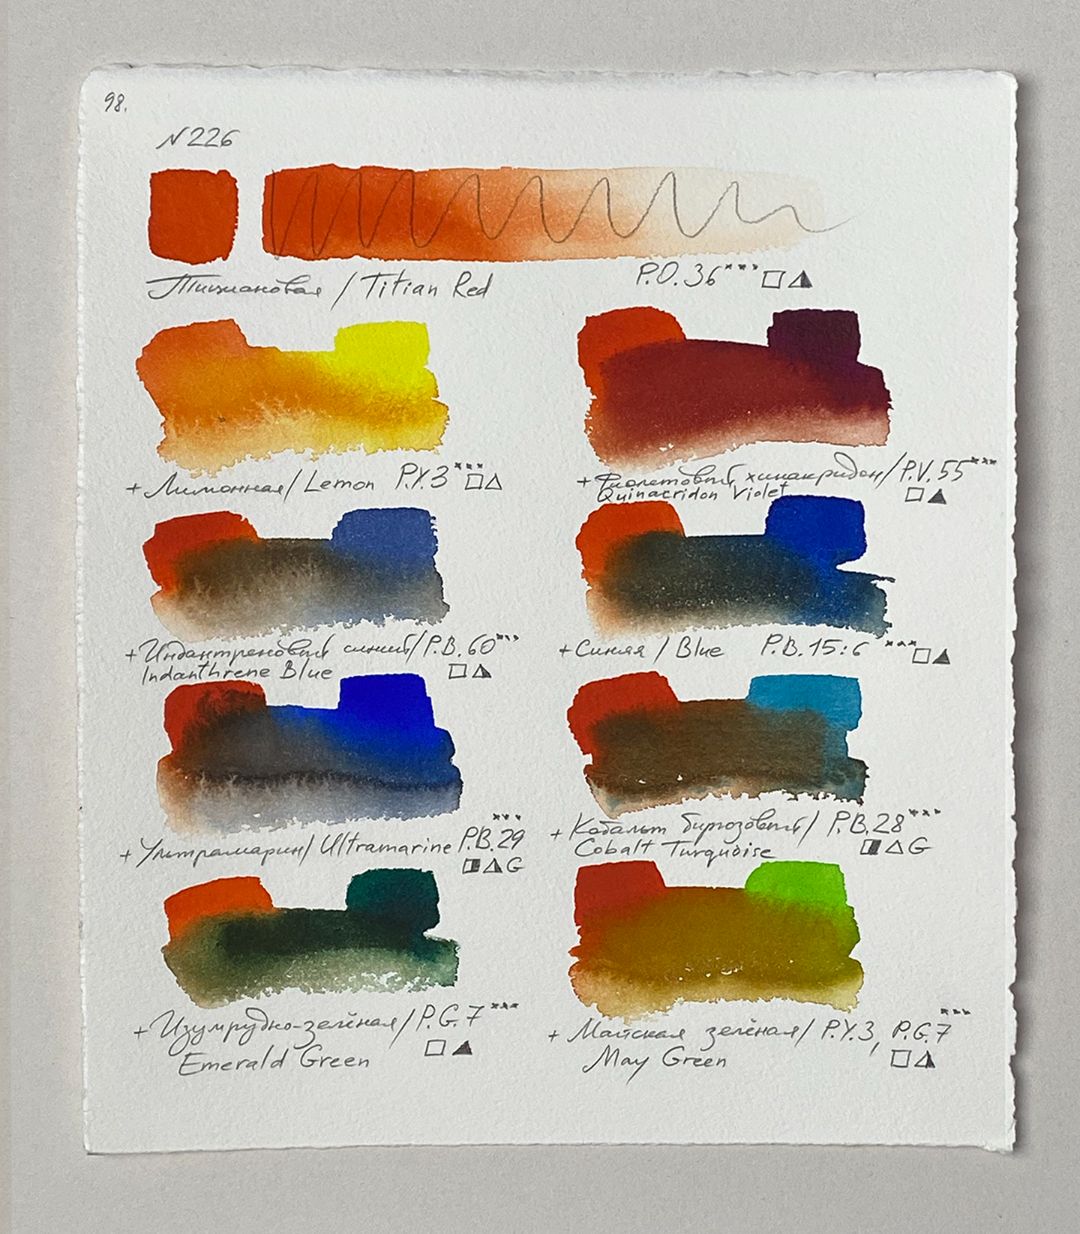 98.
N226
Тициановая / Titian Red P.O.36***
+ Лимонная / Lemon P.Y.3***
+ Фиолетовый хинакридон / P.V.55***
Quinacridon Violet
+ Индантреновый синий / P.B.60***
Indanthrene Blue
+ Синяя / Blue P.B.15:6***
+ Ультрамарин / Ultramarine P.B.29***
G
+ Кобальт бирюзовый / P.B.28***
Cobalt Turquoise G
+ Изумрудно-зелёная / P.G.7***
Emerald Green
+ Майская зелёная / P.Y.3, P.G.7***
May Green